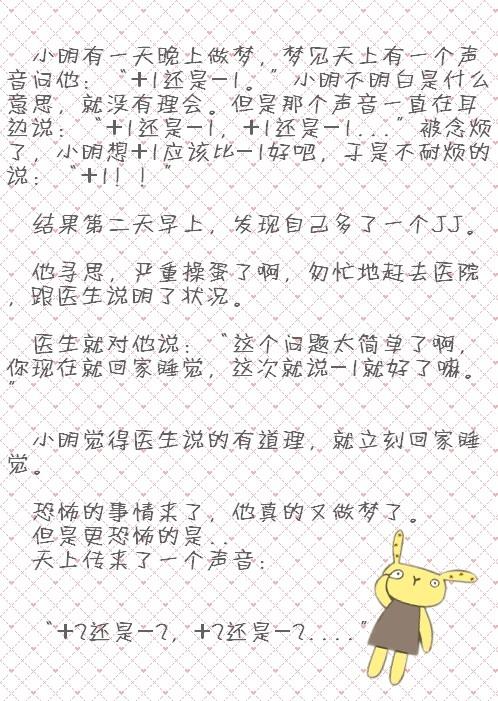 小明有一天晚上做梦，梦见天上有一个声
音问他：“+1还是-1。”小明不明白是什么
意思，就没有理会。但是那个声音一直在耳
边说：“+1还是-1，+1还是-1...”被念烦
了，小明想+1应该比-1好吧，于是不耐烦的
说：“+1！！”
结果第二天早上，发现自己多了一个JJ。
他寻思，严重操蛋了啊，匆忙地赶去医院
，跟医生说明了状况。
医生就对他说：“这个问题太简单了啊，
你现在就回家睡觉，这次就说-1就好了嘛。
”
小明觉得医生说的有道理，就立刻回家睡
觉。
恐怖的事情来了，他真的又做梦了。
但是更恐怖的是..
天上传来了一个声音：
“+2还是-2，+2还是-2....”